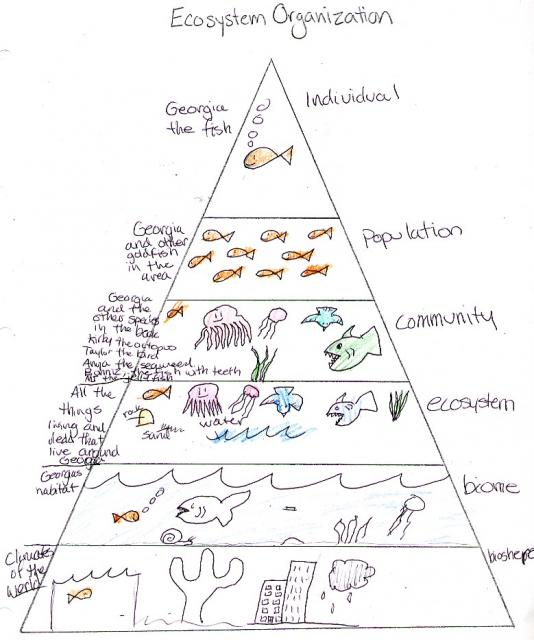 Ecosystem Organization
Georgia
the fish
Individual
Georgia
and other
goldfish
in the
area
Population
Georgia
and the
other species
in the
Kirky the octopus
Taylor the bird
Anya the seaweed
the fish with teeth
the jellyfish
community
All the
things
living and
dead that
live around
Georgia
rock
sand
water
ecosystem
Georgias
habitat
biome
Climates
of the
world
bioshere